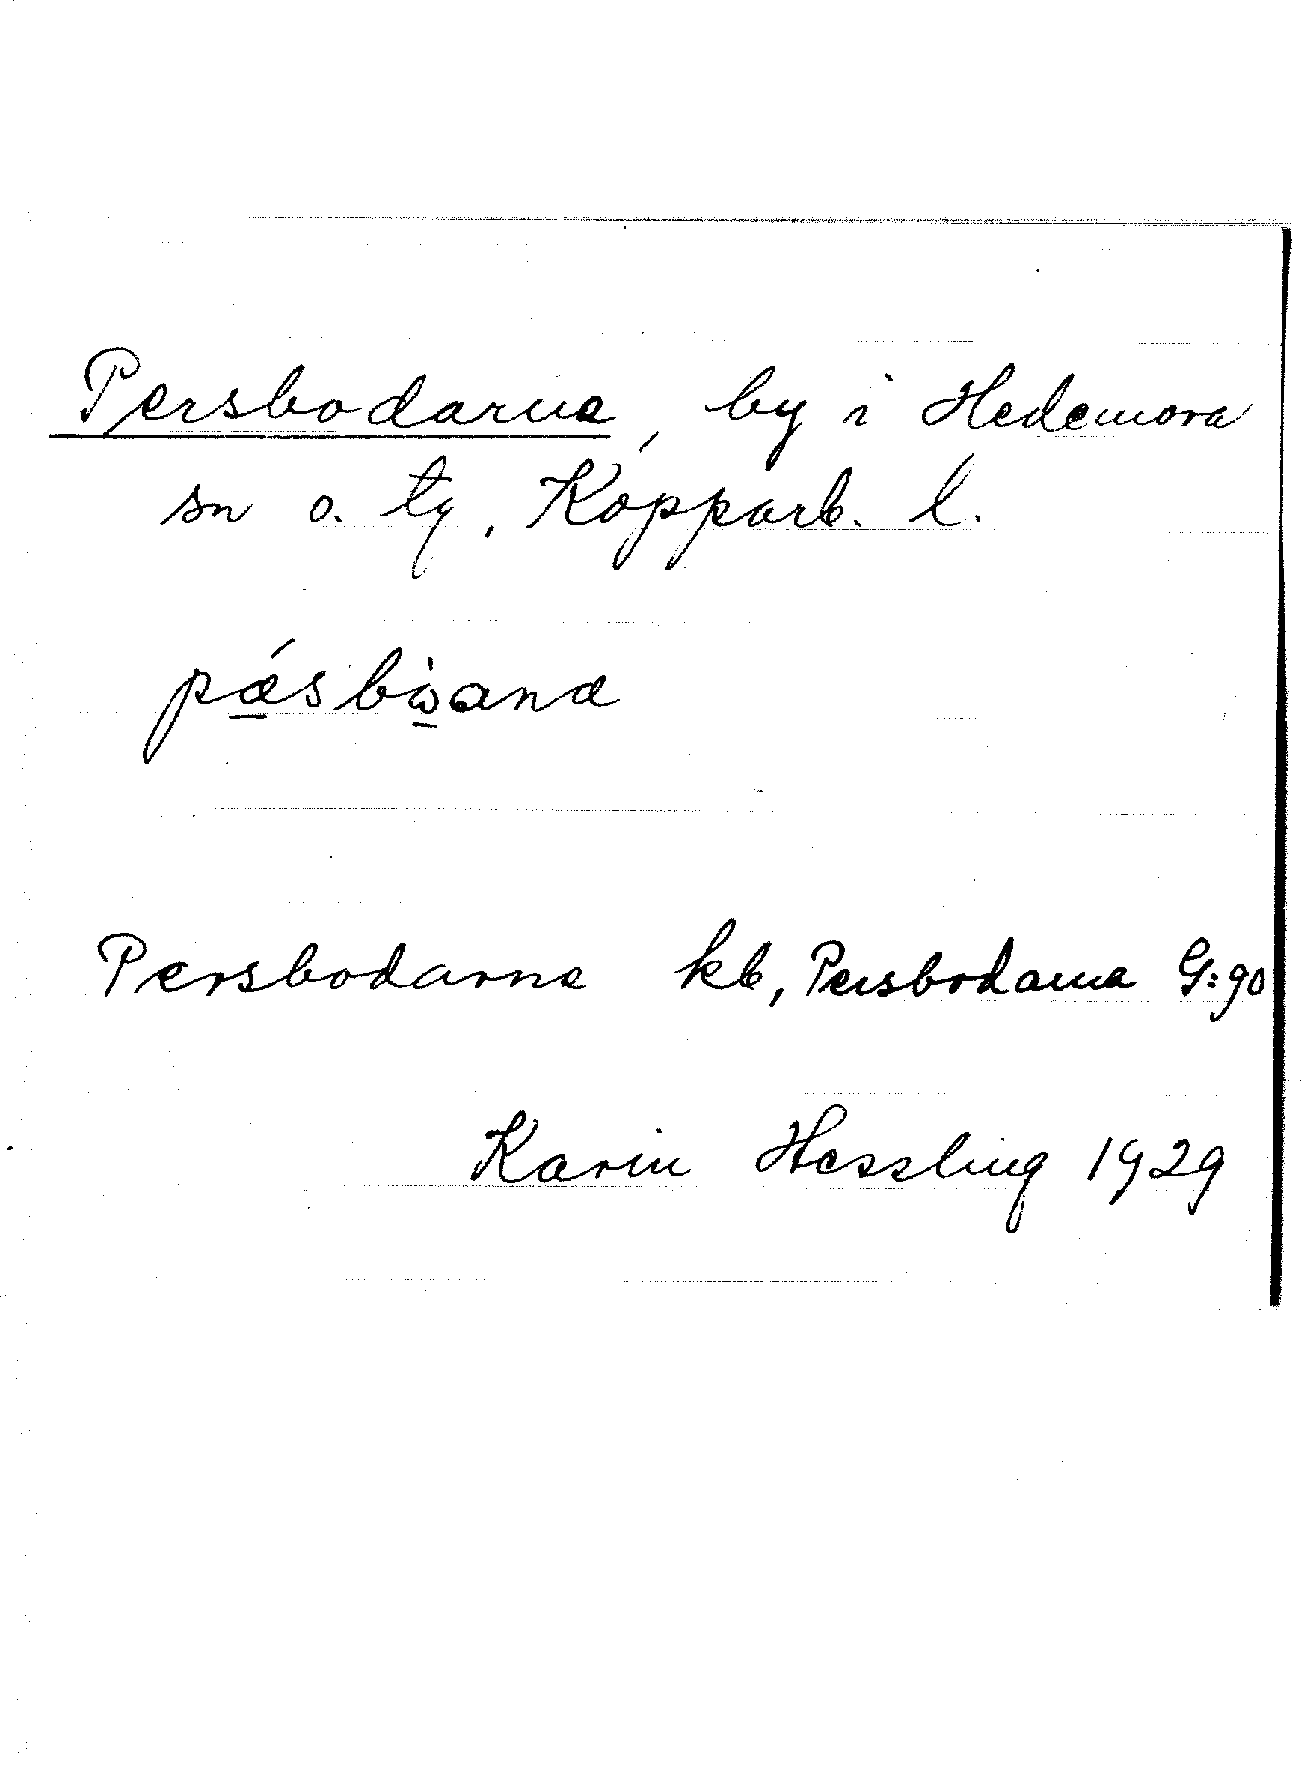 Persbodarne, by i Hedemora
sn o. tg, Kopparb. l.
pǽsbὼana
Persbodarne kb, Persbodarna G:90
Karin Hessling 1929